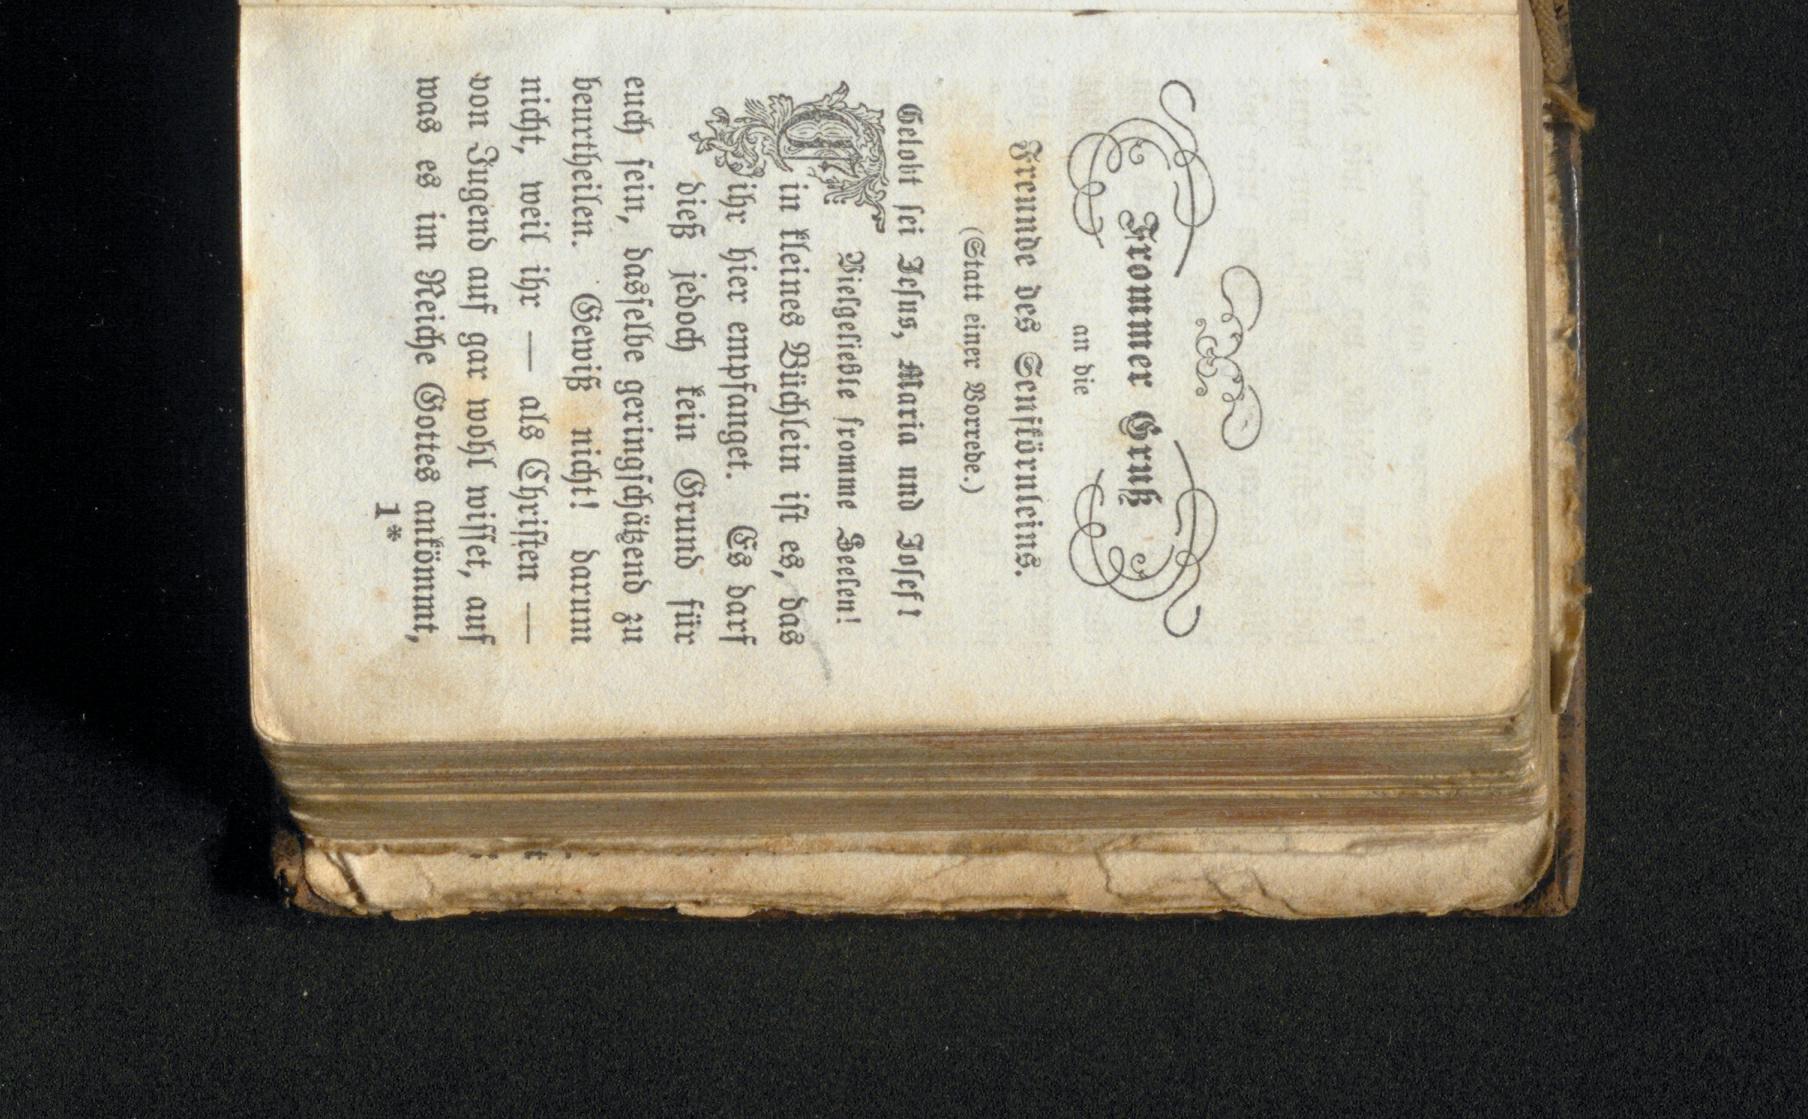 Frommer Gruß
an die
Freunde des Senfkörnleins.
(Statt einer Vorrede.)
Gelobt sei Jesus, Maria und Josef!
Vielgeliebte fromme Seelen!
Ein kleines Büchlein ist es, das
ihr hier empfanget. Es darf
dieß jedoch kein Grund für
euch sein, dasselbe geringschätzend zu
beurtheilen. Gewiß nicht! darum
nicht, weil ihr — als Christen —
von Jugend auf gar wohl wisset, auf
was es im Reiche Gottes ankömmt,
1*